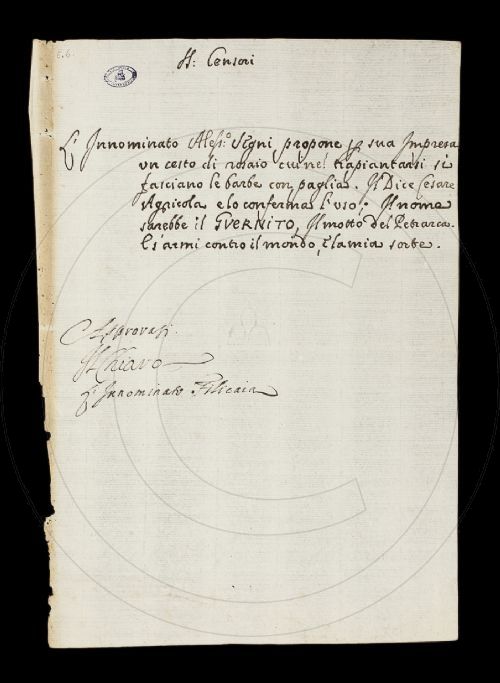 SS: Censori
L'Innominato Aless:o Segni propone p sua Impresa
un cesto di rosaio cui nel trapiantarsi si
fasciano le barbe con paglia. Il Dice Cesare
Agricola e lo conferma l'uso; Il nome
sarebbe il GUERNITO, Il motto del Petrarca.
E s'armi contro il mondo, e la mia sorte.
Approvasi
Il Chiaro
L'Innominato Filicaia